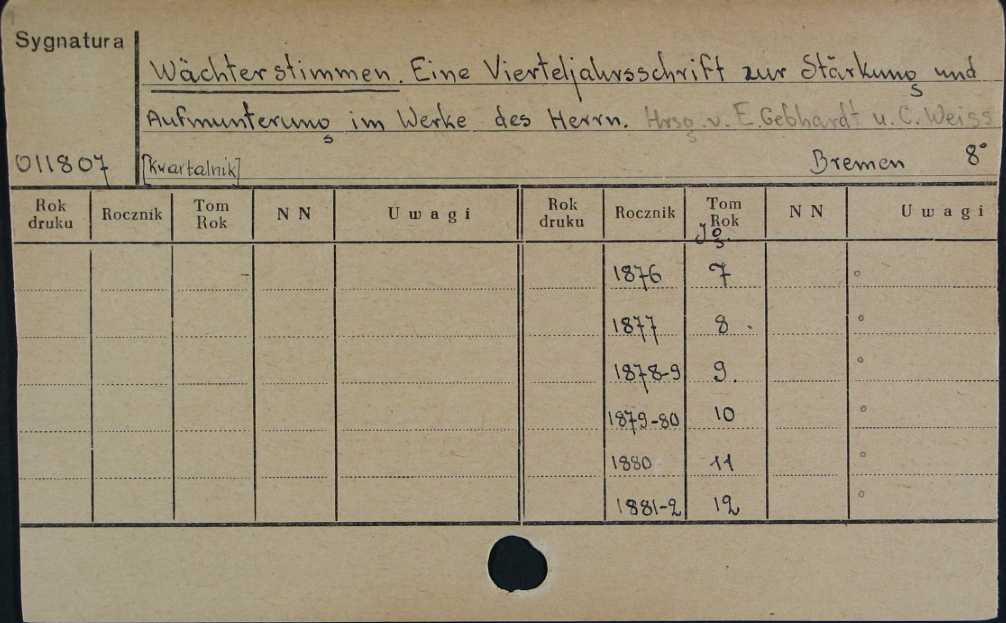 Sygnatura
Wächterstimmen. Eine Vierteljahrsschrift zur Stärkung und
Aufmunterung im Werke des Herrn. Hrsg. v. E. Gebhardt u. C. Weiss
011807 [Kwartalnik] Bremen 8°
Rok druku Rocznik Tom Rok NN Uwagi Rok druku Rocznik Tom Rok NN Uwagi
Jg.
1876 7 °
1877 8 °
1878-9 9. °
1879-80 10 °
1880 11 °
1881-2 12 °